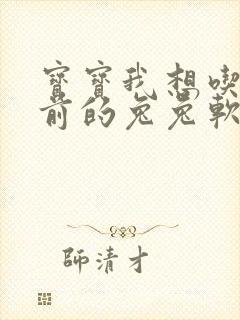 寶寶我想喫
前的兔兔軟
師清才